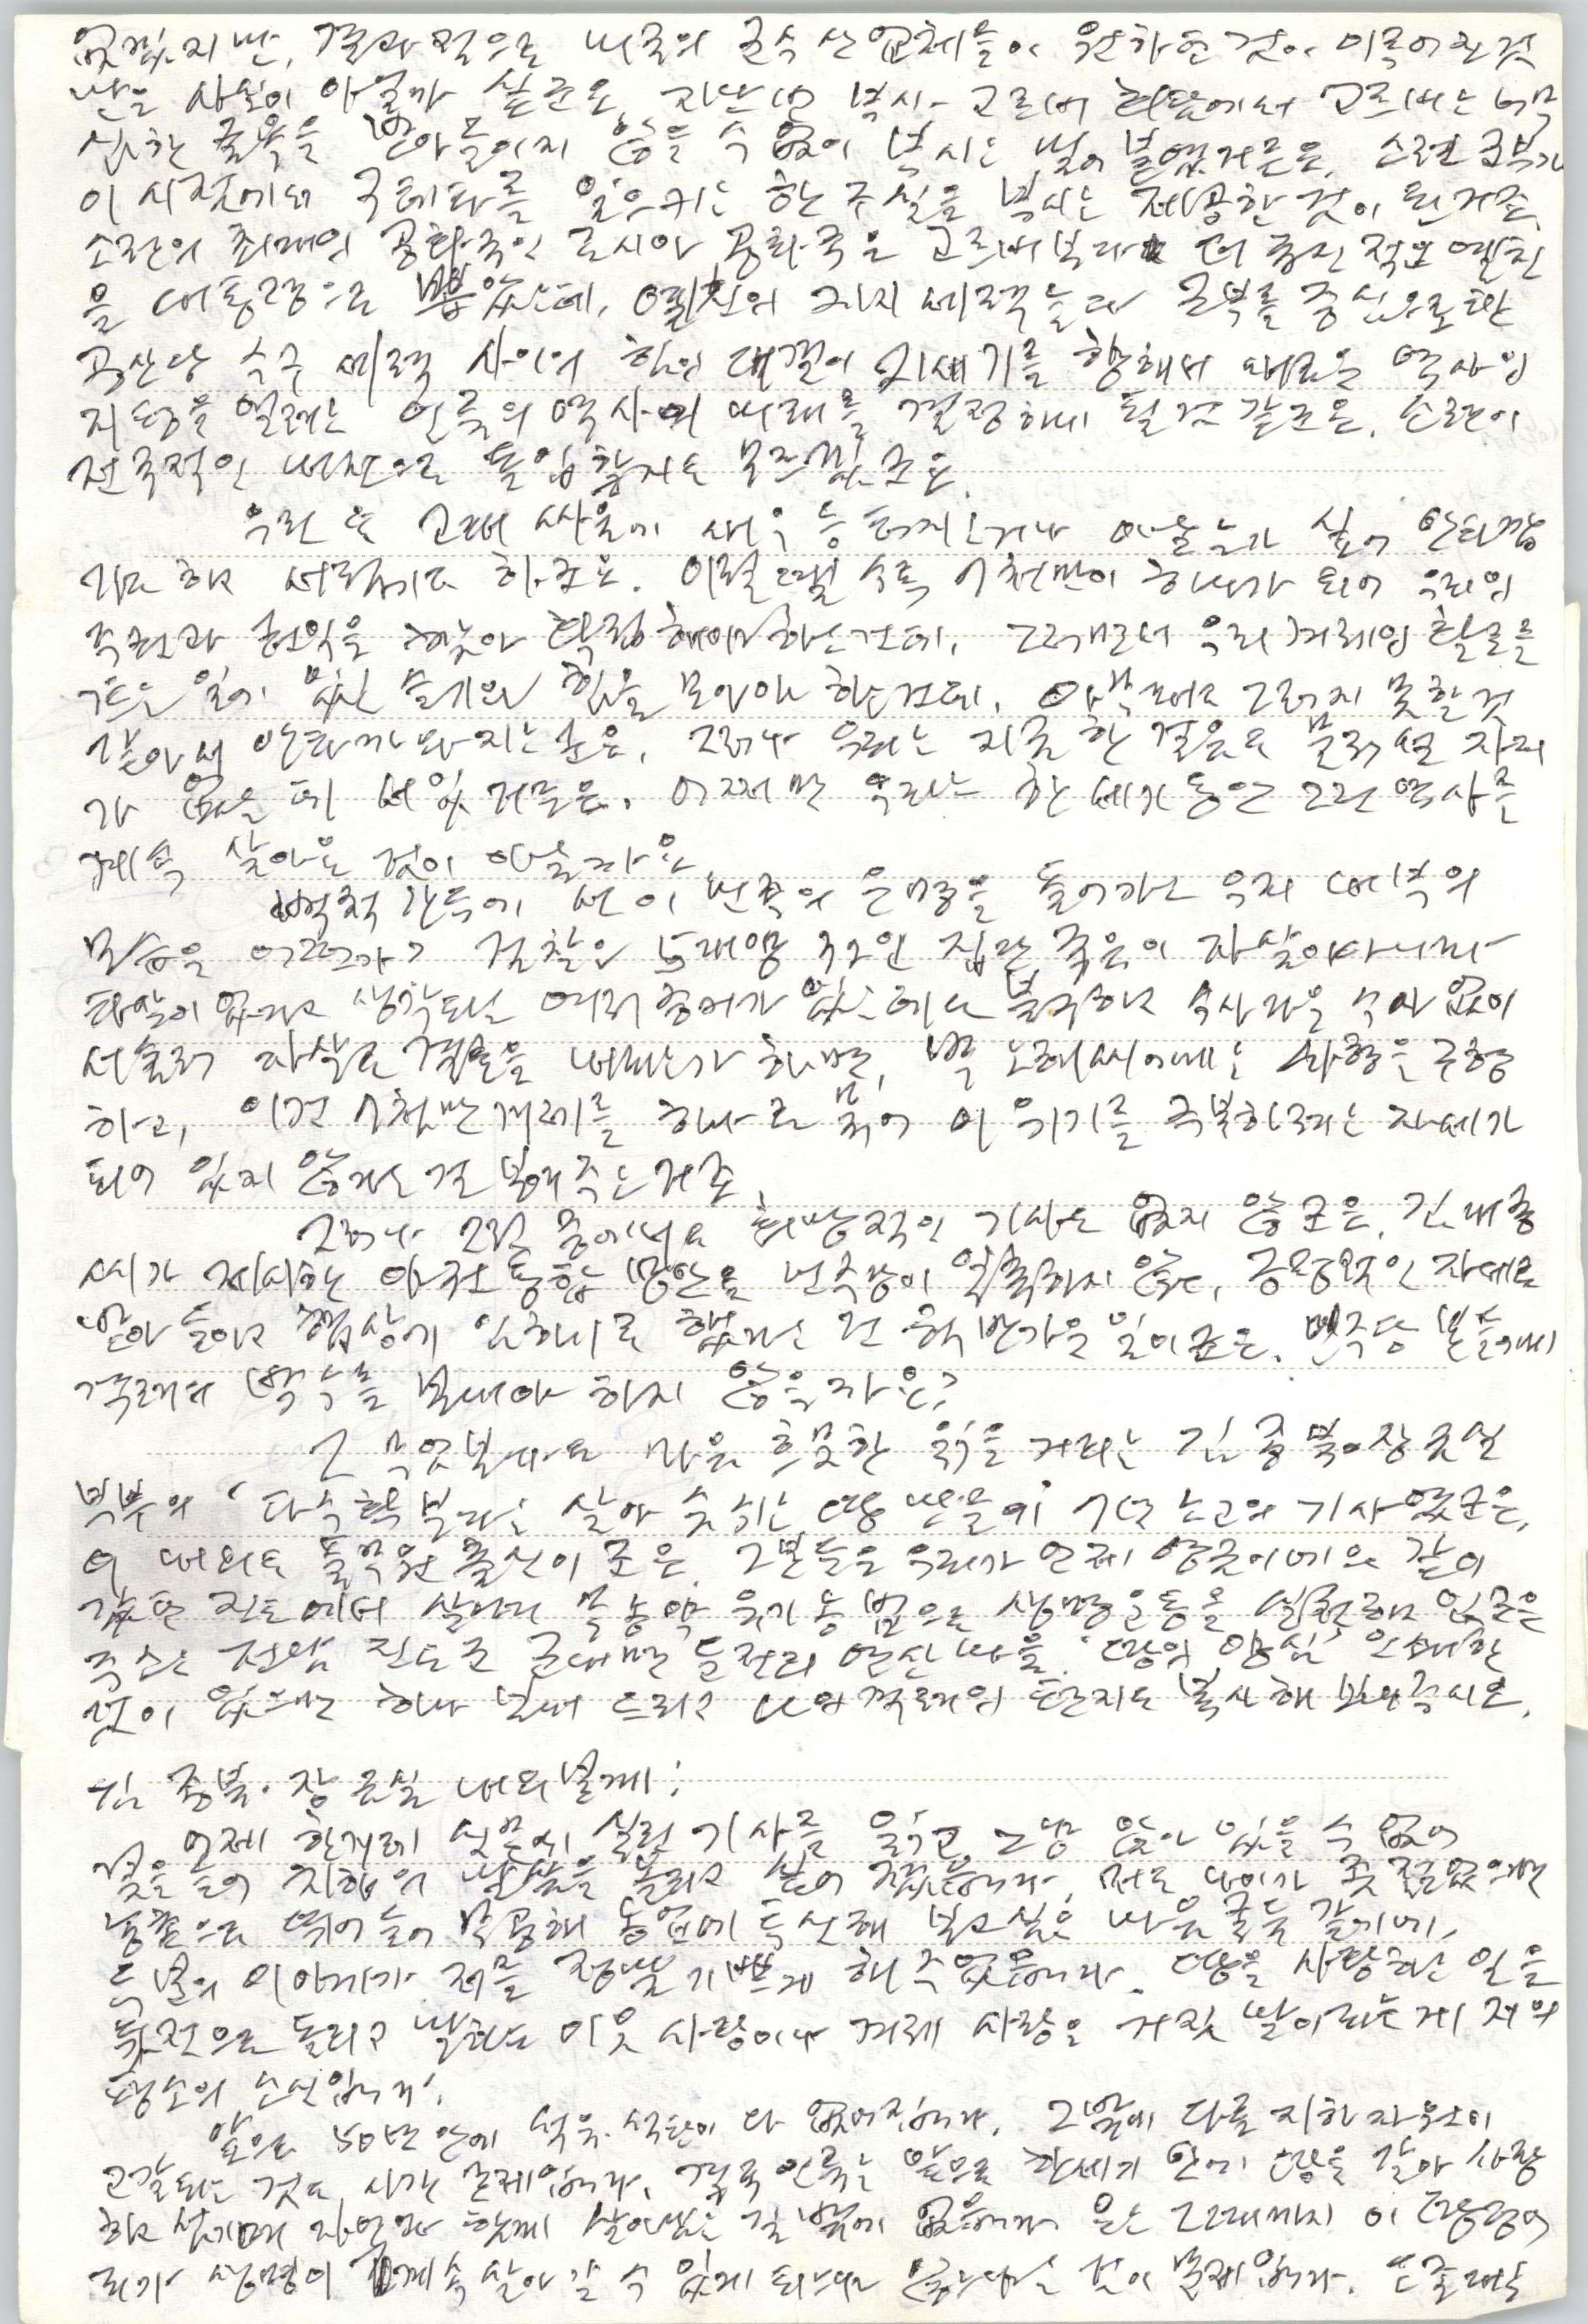 없겠지만, 결과적으로 미국의 군수 산업체들이 원하던 것이 이루어진 것
만은 사실이 아닐까 싶군요. 지난번 부시-고르비 회담에서 고르비는
심한 굴욕을 받아들이지 않을 수 없이 부시는 밀어붙였거든요. 소련 군부가
이 시점에서 쿠데타를 일으키는 한 구실을 부시는 제공한 것이 된 거죠.
소련의 최대의 공화국인 로시아 공화국은 고르비보다 더 급진적인 옐친
을 대통령으로 뽑았는데, 옐친의 지지 세력들과 군부를 중심으로 한
공산당 수구 세력 사이의 힘의 대결이 21세기를 향해서 새로운 역사의
지평을 열려는 인류의 역사의 미래를 결정하게 될 것 같군요. 소련이
전국적인 내전으로 돌입할지도 모르겠군요.
우린 또 고래 싸움에 새우 등 터지는거나 아닐는가 싶어 안타깝
기도 하고 서럽기도 하군요. 이럴 때일수록 7천만이 하나가 되어 우리의
주권과 권익을 찾아 확립해야 하는 건데, 그러면서 우리 겨레의 활로를
같은 일에 있는 슬기와 힘을 모아야 하는 건데, 아무래도 그러지 못할 것
같아서 안타까와지는군요. 그러나 우리는 지금 한 걸음도 물러설 자리
가 없는 데 서 있거든요. 어쩌면 우리는 한 세기 동안 그런 역사를
계속 살아온 것이 아닐까요.
백척간두에 선 이 민족의 운명을 둘러싼 우리 내부의
모습은 어떤가? 경찰은 오대양 32인 집단 죽음이 자살이 아니라
타살이었다고 생각되는 여러 증거가 있는데도 불구하고 수사다운 수사 없이
서둘러 자살로 결론을 내렸는가 하면, 박노해씨에게는 사형을 구형
하고, 이건 7천만 겨레를 하나로 묶어 이 위기를 극복하려는 자세가
되어 있지 않다는 걸 말해 주는 거죠.
그러나 그런 중에서도 희망적인 기사도 없지 않군요. 김대중
씨가 제시하는 야권 통합 방안을 민주당이 일축하지 않고, 긍정적인 자세로
받아들이고 협상에 임하기로 했다는 건 퍽 반가운 일이군요. 민주당 분들에게
격려의 박수를 보내야 하지 않을까요?
그 무엇보다도 마음 흐뭇한 읽을거리는 김종북·장금실
부부의 '다수확보다는 살아 숨쉬는 땅 만들기' 7년 노고의 기사였군요.
이 내외도 풀무원 출신이군요. 그분들은 우리가 언제 영금이네와 같이
갔던 진도에서 살면서 무농약 유기 농법으로 생명운동을 실천하고 있군요.
주소는 전남 진도군 군내면 둔전리 연산마을. '땅의 양심' 인쇄한
것이 있으면 하나 보내 드리고 나의 격려의 편지도 복사해 보내주시오.
김종북·장금실 내외분께;
어제 한겨레 신문에 실린 기사를 읽고 그냥 앉아 있을 수 없어
붓을 들어 치하의 말씀을 올리고 싶어졌습니다. 저도 나이가 좀 젊었으면
농촌으로 뛰어들어 무공해 농업에 투신해 보고 싶은 마음 굴뚝 같기에,
두 분의 이야기가 저를 정말 기쁘게 해 주었습니다. 땅을 사랑하는 일을
뒷전으로 돌리고 말하는 이웃 사랑이나 겨레 사랑은 거짓말이라는 게 저의
평소의 소신입니다.
앞으로 50년 안에 석유·석탄이 다 없어집니다. 그밖에 다른 지하자원이
고갈되는 것도 시간 문제입니다. 결국 인류는 앞으로 한 세기 안에 땅을 갈아 사랑
하고 섬기며 자연과 함께 살아남는 길 밖에 없습니다. 또는 그때까지 이 땅덩어
리가 생명이 계속 살아갈 수 있게 되느냐 않느냐는 것이 문제입니다.